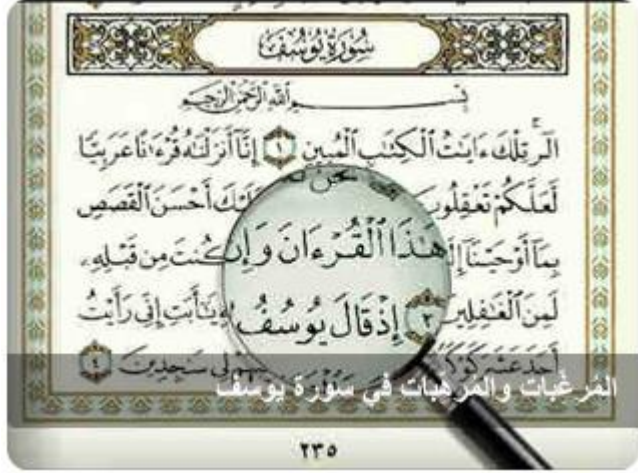 سُورَةُ يُوسُفَ
بِسْمِ ٱللَّهِ ٱلرَّحْمَٰنِ ٱلرَّحِيمِ
الٓر تِلْكَ ءَايَٰتُ ٱلْكِتَٰبِ ٱلْمُبِينِ ١ إِنَّآ أَنزَلْنَٰهُ قُرْءَٰنًا عَرَبِيًّا
لَّعَلَّكُمْ تَعْقِلُونَ نَحْنُ عَلَيْكَ أَحْسَنَ ٱلْقَصَصِ
بِمَآ أَوْحَيْنَآ إِلَيْكَ هَٰذَا ٱلْقُرْءَانَ وَإِن كُنتَ مِن قَبْلِهِۦ
لَمِنَ ٱلْغَٰفِلِينَ ٣ إِذْ قَالَ يُوسُفُ يَٰٓأَبَتِ إِنِّى رَأَيْتُ
أَحَدَ عَشَرَ كَوْكَبًا لِى سَٰجِدِينَ ٤
المُرغِّبات والمُرهِّبات في سورة يوسف
٢٣٥